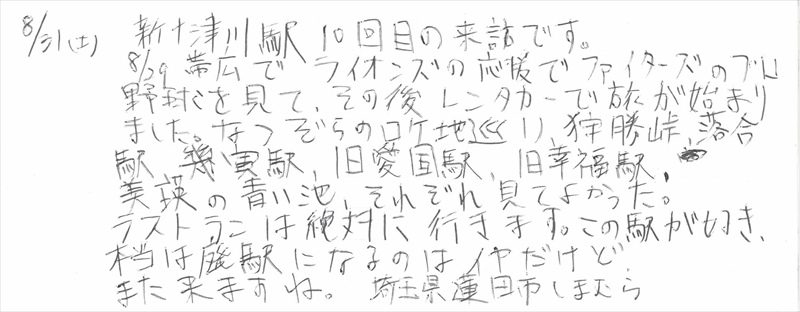 8/31(土) 新十津川駅 10回目の来訪です。
8/29 帯広でライオンズの応援でファイターズのプロ
野球を見て、その後レンタカーで旅が始まり
ました。なつぞらのロケ地巡り、狩勝峠、落合
駅、幾寅駅、旧愛国駅、旧幸福駅、
美瑛の青い池、それぞれ見てよかった。
ラストランは絶対に行きます。この駅が好き、
本当は廃駅になるのはイヤだけど
また来ますね。 埼玉県蓮田市しまむら